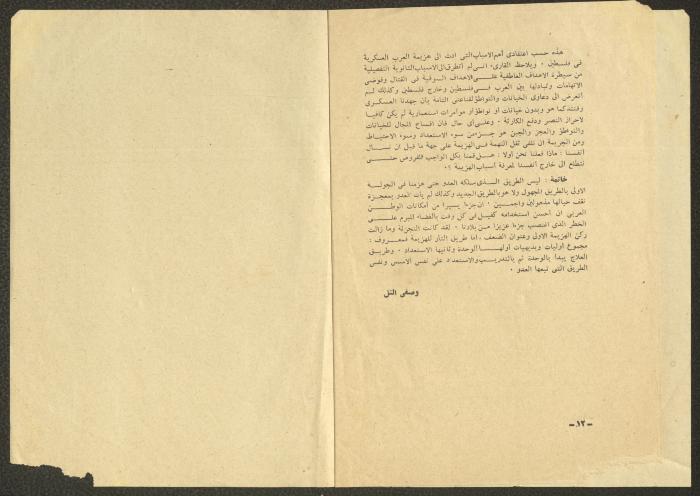 هذه حسب اعتقادي أهم الاسباب التي ادت الى هزيمة العرب العسكرية
في فلسطين . ويلاحظ القارىء انني لم أتطرق الى الاسباب الثانوية التفصيلية
من سيطرة الاهداف العاطفية على الاهداف السوقية في القتال وفوضى
الاتهامات وتبادلها بين العرب في فلسطين وخارج فلسطين وكذلك لم
أتعرض الى دعاوى الخيانات والتواطؤ لقناعتي التامة بأن جهدنا العسكري
وقتئذ كما هو وبدون خيانات او تواطؤ أو مؤامرات استعمارية لم يكن كافيا
لاحراز النصر ودفع الكارثة . وعلى أي حال فان افساح المجال للخيانات
والتواطؤ والعجز والجبن هو جزء من سوء الاستعداد وسوء الاحتياط
ومن الجريمة ان نلقي ثقل التهمة في الهزيمة على جهة ما قبل ان نسأل
أنفسنا : ماذا فعلنا نحن أولا : هل قمنا بكل الواجب المفروض حتى
نتطلع الى خارج أنفسنا لمعرفة أسباب الهزيمة ؟.
خاتمة : ليس الطريق الذي سلكه العدو حتى هزمنا في الجولة
الاولى بالطريق المجهول ولا هو بالطريق الجديد وكذلك لم يأت العدو بمعجزة
نقف حيالها مذهولين واجمين . ان جزءا يسيرا من امكانات الوطن
العربي ان أحسن استخدامه كفيل في كل وقت بالقضاء المبرم على
الخطر الذي اغتصب جزءا عزيزا من بلادنا . لقد كانت التجزئة وما زالت
ركن الهزيمة الاولى وعنوان الضعف . اما طريق الثأر للهزيمة فمعروف :
مجموع أوليات وبديهيات أولها الوحدة وثانيها الاستعداد . وطريق
العلاج يبدأ بالوحدة ثم بالتدريب والاستعداد على نفس الاسس ونفس
الطريق التي تبعها العدو .
وصفي التل
-١٣-